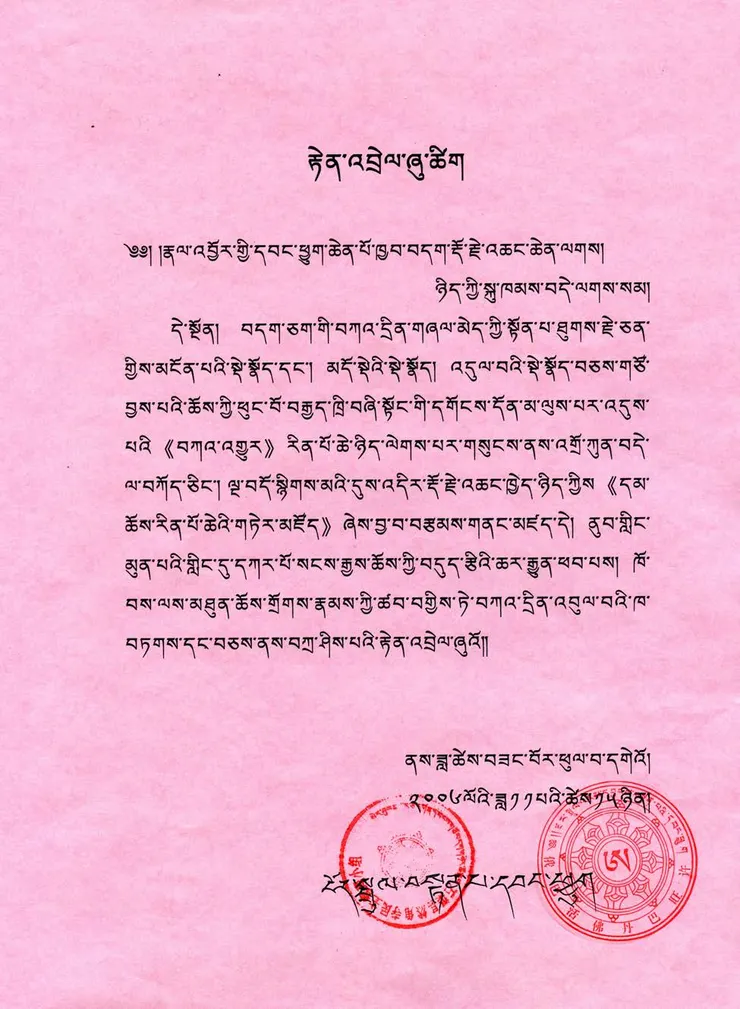 རྟེན་འབྲེལ་ཞུ་ཚིག
༄༅། །རྣལ་འབྱོར་གྱི་དབང་ཕྱུག་ཆེན་པོ་ཁྱབ་བདག་རྡོ་རྗེ་འཆང་ཆེན་ལགས།
ཉིད་ཀྱི་སྐུ་ཁམས་བདེ་ལགས་སམ།
དེ་སྔོན། བདག་ཅག་གི་བཀའ་དྲིན་གཞལ་མེད་ཀྱི་སྟོན་པ་ཐུགས་རྗེ་ཅན་
གྱིས་མངོན་པའི་སྡེ་སྣོད་དང་། མདོ་སྡེའི་སྡེ་སྣོད། འདུལ་བའི་སྡེ་སྣོད་བཅས་གཙོ་
བྱས་པའི་ཆོས་ཀྱི་ཕུང་བོ་བརྒྱད་ཁྲི་བཞི་སྟོང་གི་དགོངས་དོན་མ་ལུས་པར་འདུས་
པའི 《བཀའ་འགྱུར》 རིན་པོ་ཆེ་ཉིད་ལེགས་པར་གསུངས་ནས་འགྲོ་ཀུན་བདེ་
ལ་བཀོད་ཅིང་། ལྔ་བདོ་སྙིགས་མའི་དུས་འདིར་རྡོ་རྗེ་འཆང་ཁྱེད་ཉིད་ཀྱིས 《དམ་
ཆོས་རིན་པོ་ཆེའི་གཏེར་མཛོད》 ཞེས་བྱ་བ་བརྩམས་གནང་མཛད་དེ། ནུབ་གླིང་
མུན་པའི་གླིང་དུ་དཀར་པོ་སངས་རྒྱས་ཆོས་ཀྱི་བདུད་རྩིའི་ཆར་རྒྱུན་ཕབ་པས། ཁོ་
བས་ལས་མཐུན་ཆོས་གྲོགས་རྣམས་ཀྱི་ཚབ་བགྱིས་ཏེ་བཀའ་དྲིན་འབུལ་བའི་ཁ་
བཏགས་དང་བཅས་ནས་བཀྲ་ཤིས་པའི་རྟེན་འབྲེལ་ཞུའོ།།
ནས་ཟླ་ཚེས་བཟང་བོར་ཕུལ་བ་དགེའོ།
༢༠༠༦ལོའི་ཟླ་༡༡པའི་ཚེས་༡༥ཉིན།